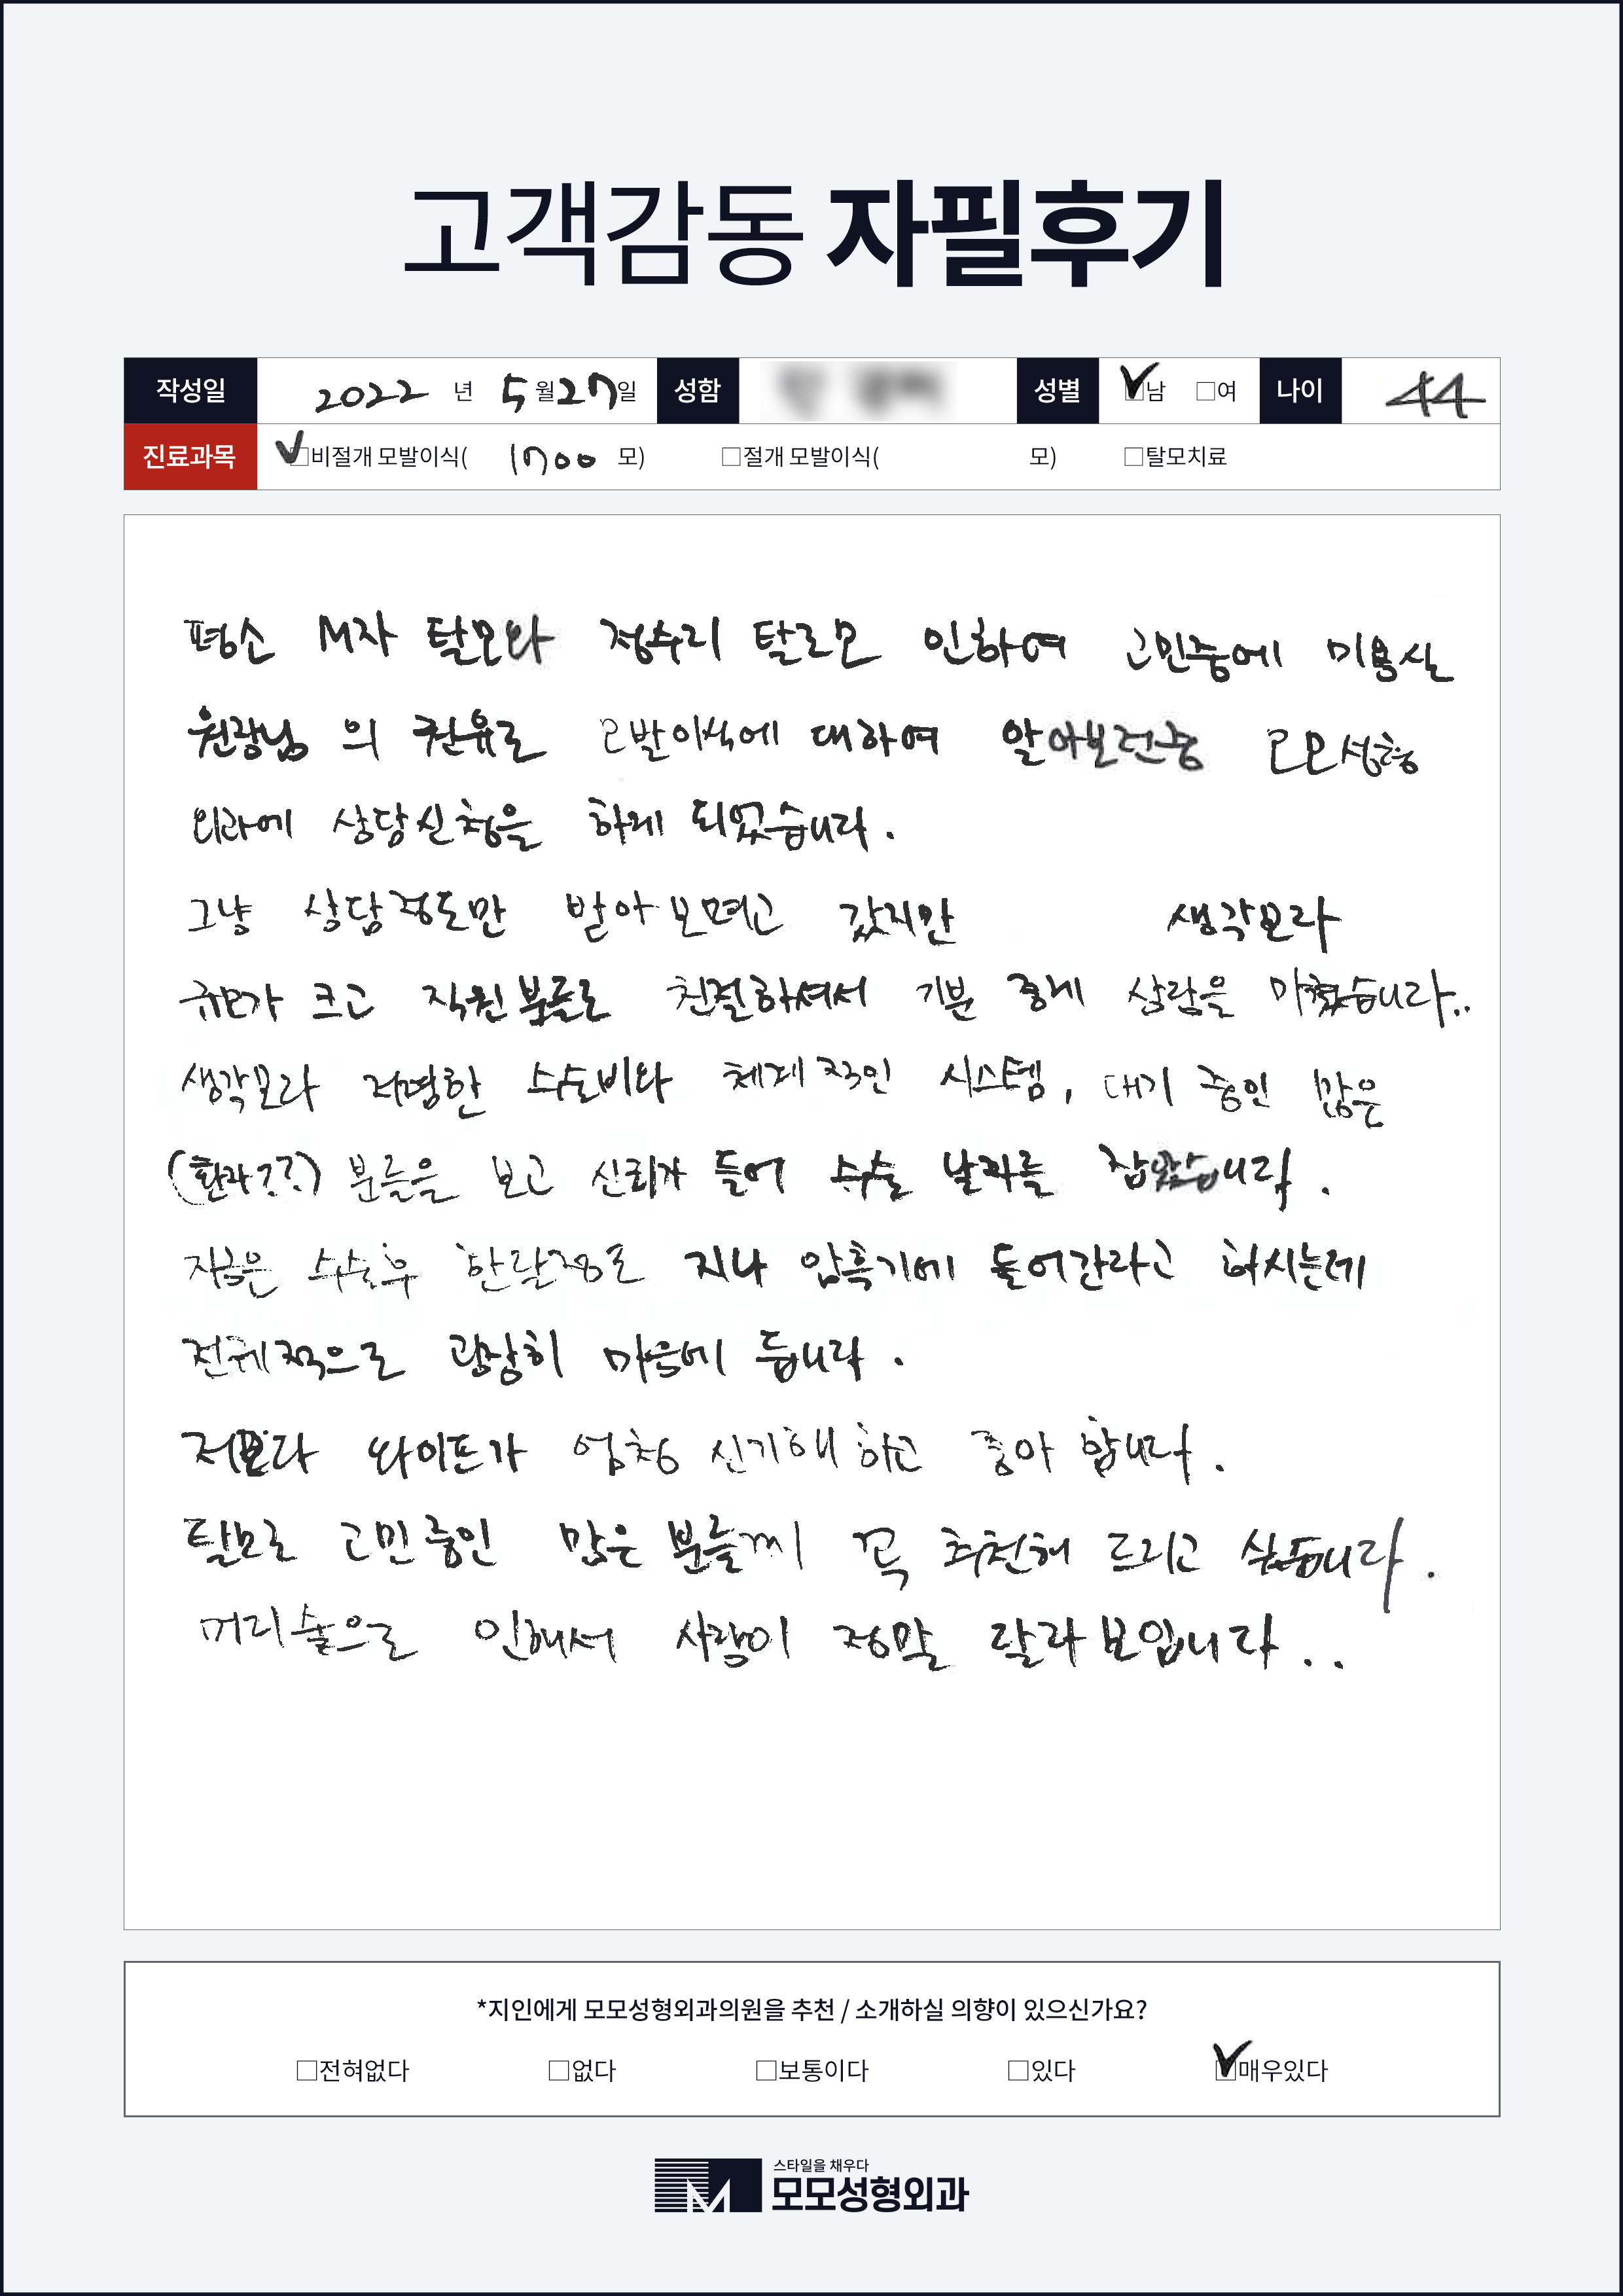 고객감동 자필후기
작성일 2022 년 5 월 27 일 성함 성별 ☑남 □여 나이 44
진료과목 ☑비절개 모발이식( 1700 모) □절개 모발이식( 모) □탈모치료
평소 M자 탈모와 정수리 탈모로 인하여 고민중에 미용실
원장님 의 권유로 모발이식에 대하여 알아보던중 모모성형
외과에 상담신청을 하게 되었습니다.
그냥 상담정도만 받아보려고 갔지만 생각보다
규모가 크고 직원분들도 친절하셔서 기분 좋게 상담을 마쳤습니다..
생각보다 저렴한 수술비와 체계적인 시스템, 대기 중인 많은
(환자??) 분들을 보고 신뢰가 들어 수술 날짜를 잡았습니다.
지금은 수술후 한달정도 지나 암흑기에 들어간다고 하시는데
전체적으로 굉장히 마음에 듭니다.
저보다 와이프가 엄청 신기해 하고 좋아 합니다.
탈모로 고민중인 많은 분들께 꼭 추천해 드리고 싶습니다.
머리숱으로 인해서 사람이 정말 달라보입니다..
*지인에게 모모성형외과의원을 추천 / 소개하실 의향이 있으신가요?
□전혀없다 □없다 □보통이다 □있다 ☑매우있다
스타일을 채우다
모모성형외과